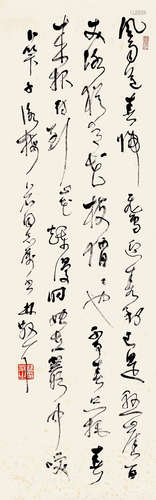 風雨送春歸飛雪迎春到已是懸崖百
丈冰猶有花枝俏〻也不爭春只把春
來報待到山花爛漫時她在叢中笑
卜算子詠梅同志屬書林散